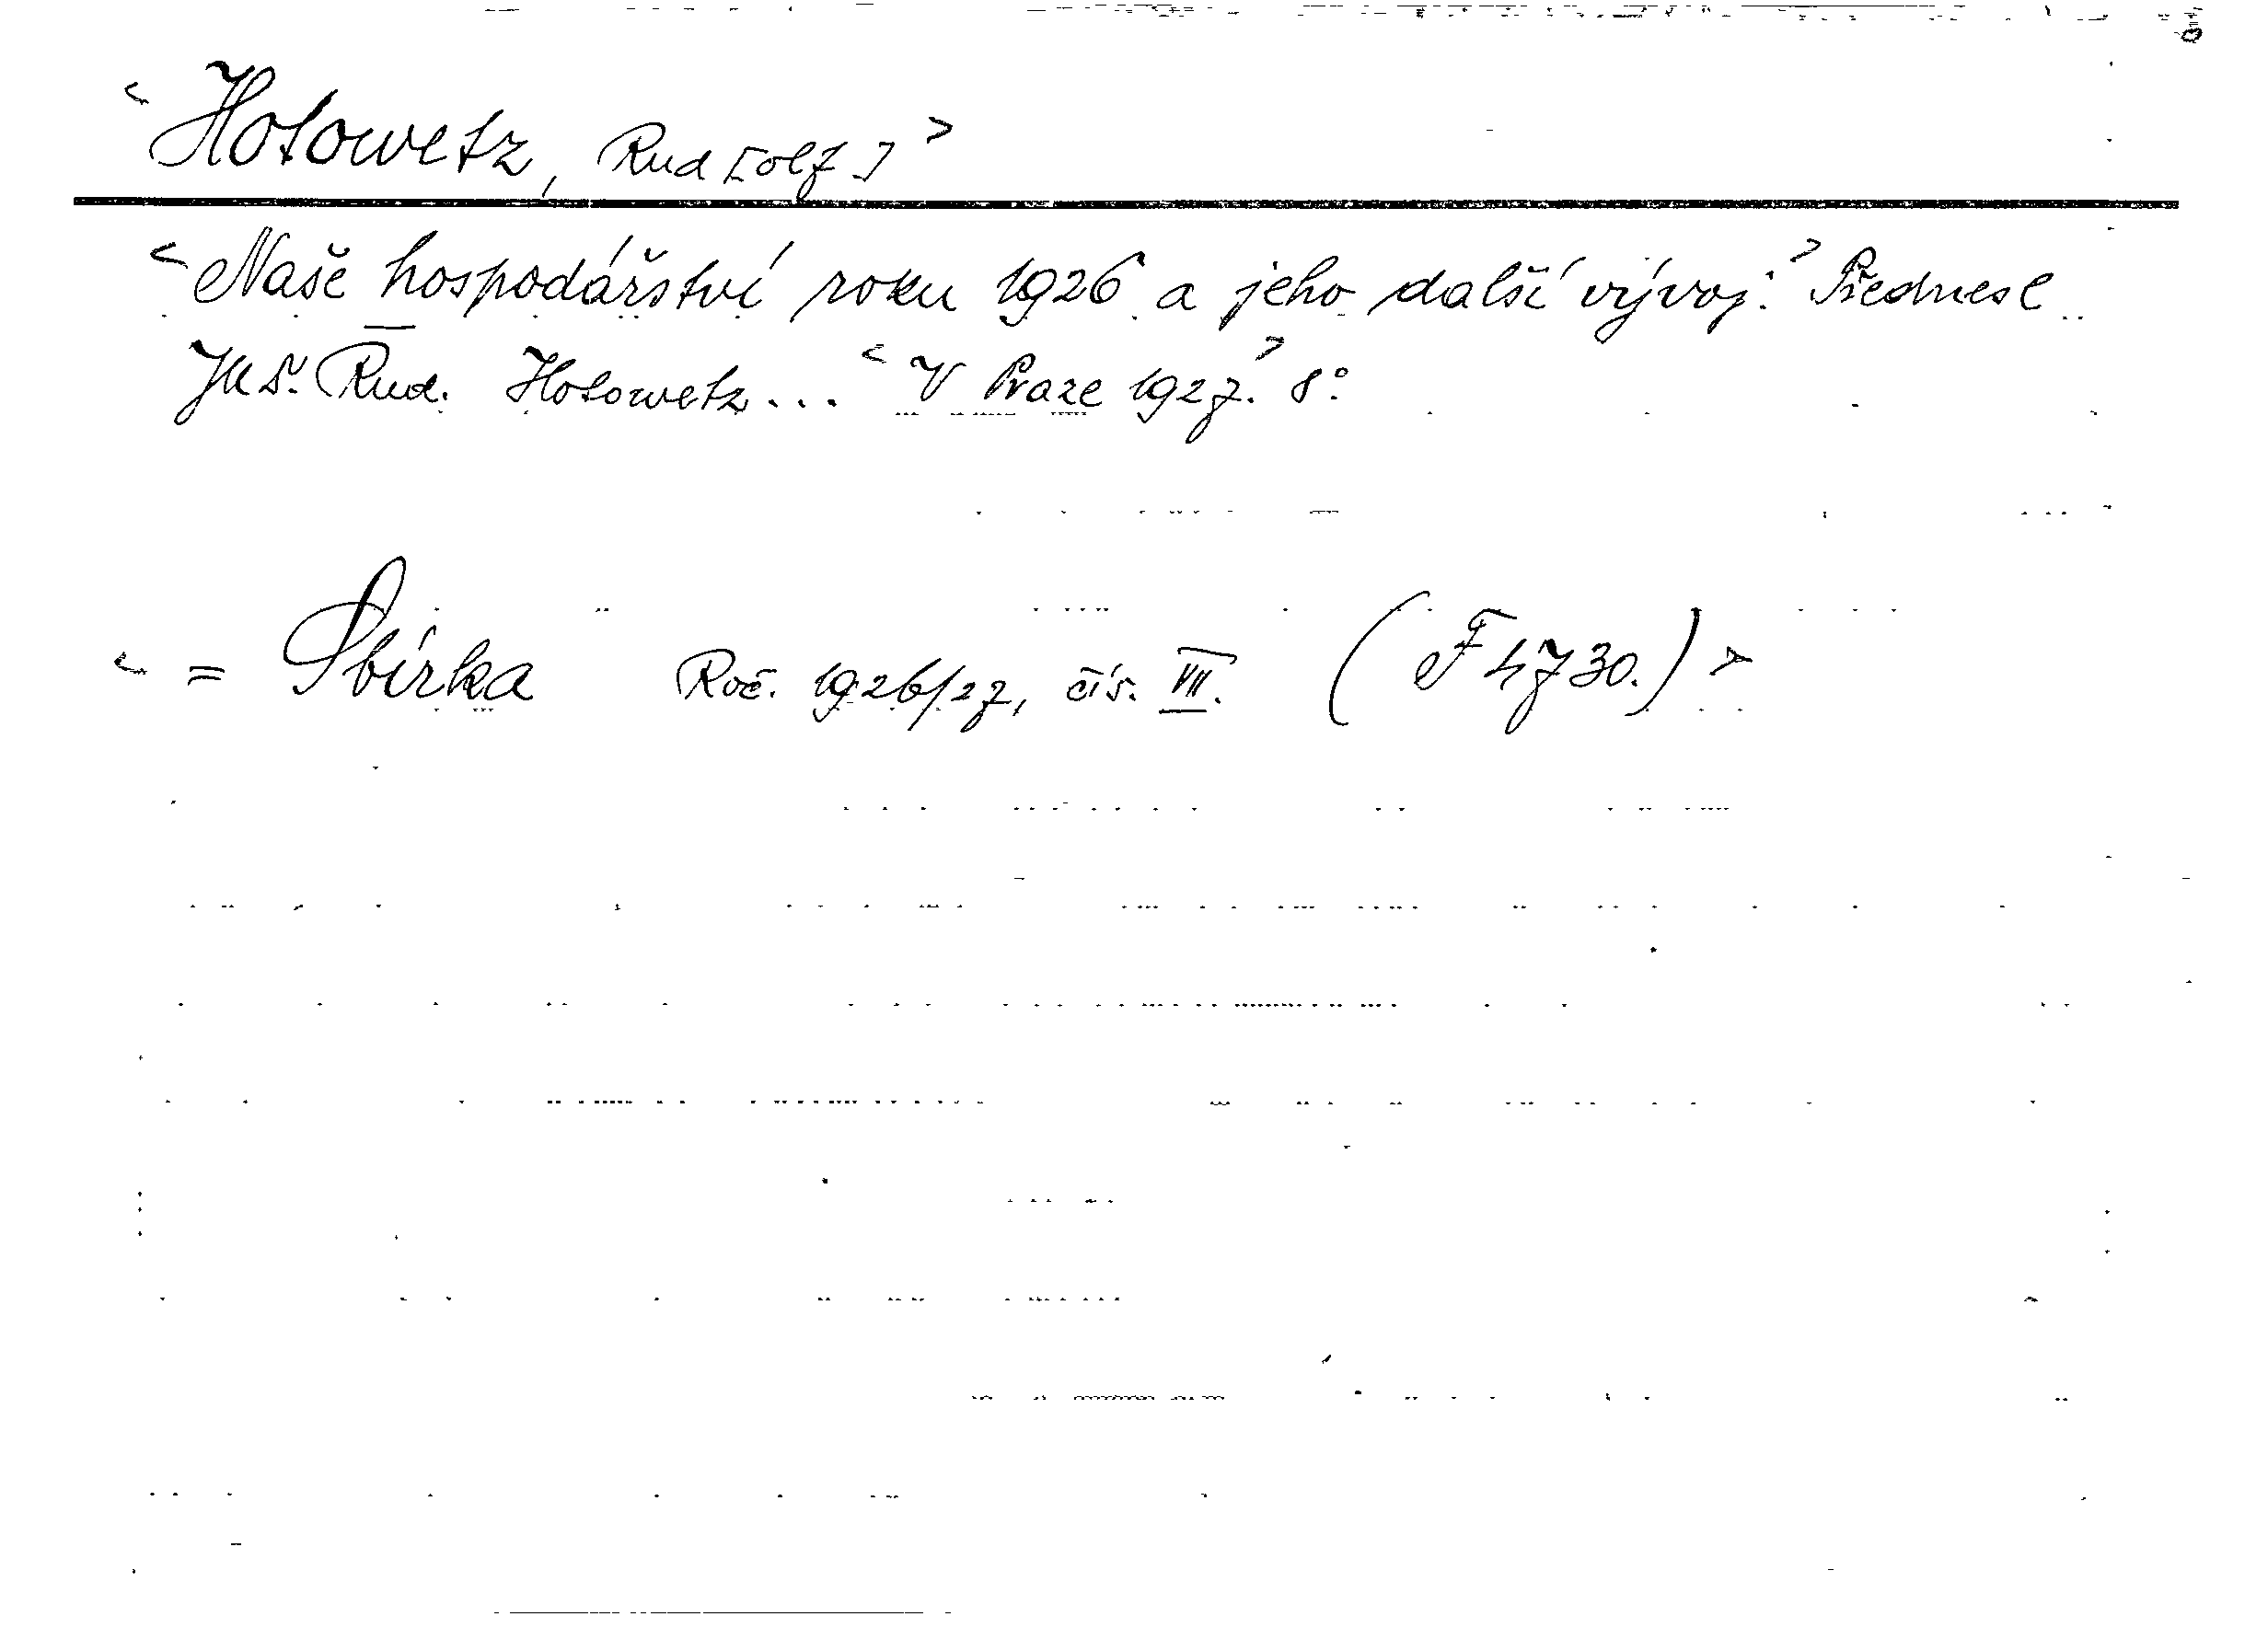 < Hotowetz, Rud[olf] >
< Naše hospodářství roku 1926 a jeho další vývoj. > Přednesl
JUDr. Rud. Hotowetz... < V Praze 1927. > 8°
< = Sbírka Roč. 1926/27, čís. VII. (F 4730.) >